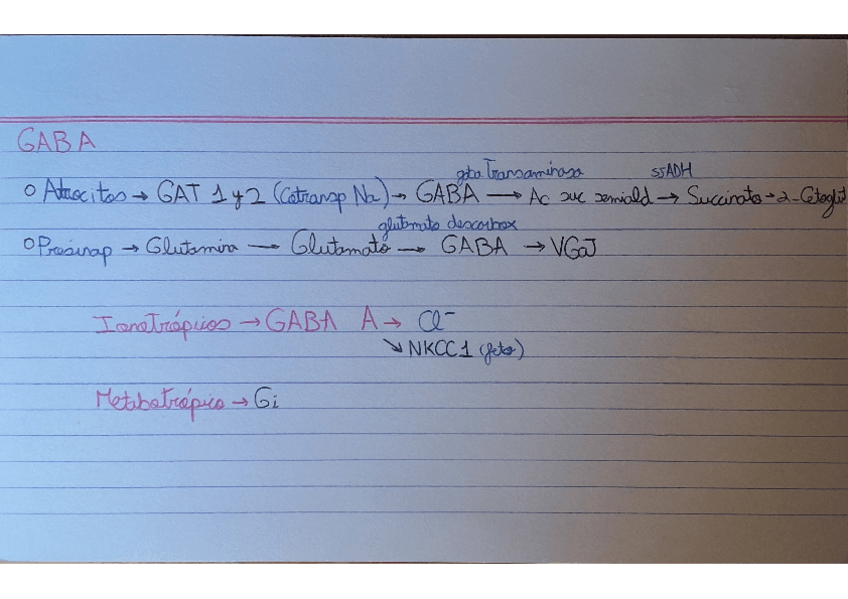 GABA
gaba Transaminasa ssADH
O Astrocitos → GAT 1 y 2 (Cotransp Na) → GABA → Ac suc semiald → Succinato → 2-Cetoglut
glutamato descarbox
O Presinap → Glutamina — Glutamato → GABA → VGaT
Ionotrópicos → GABA A → Cl⁻
↘ NKCC1 (feto)
Metabotrópico → Gi